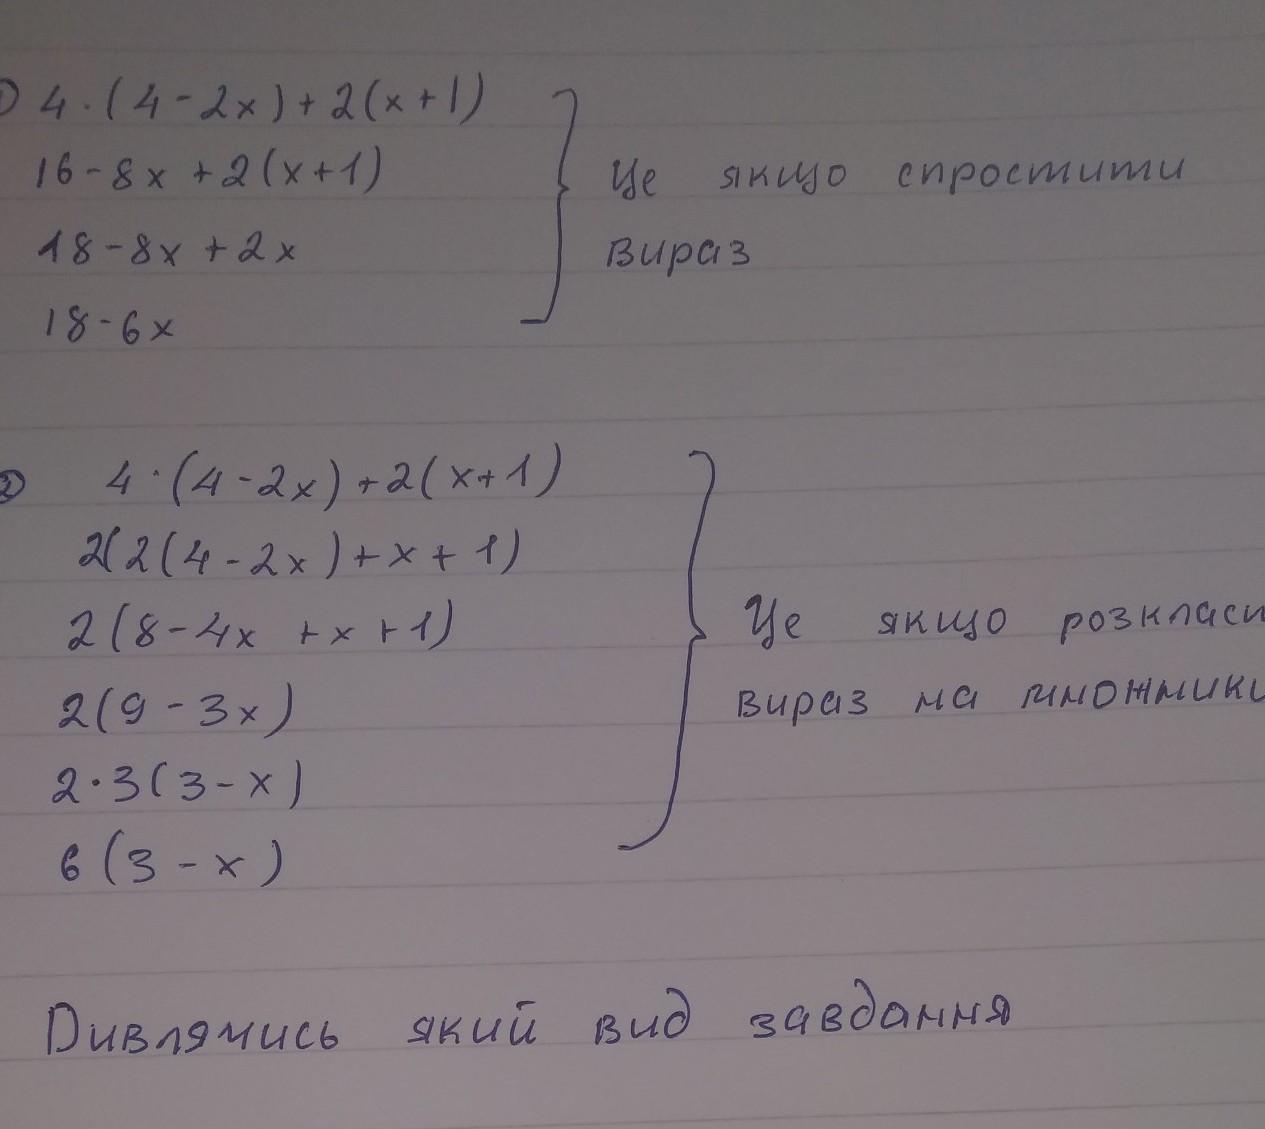 1) 4·(4-2x)+2(x+1)
16-8x+2(x+1)
18-8x+2x
18-6x
Це якщо спростити
вираз
2) 4·(4-2x)+2(x+1)
2(2(4-2x)+x+1)
2(8-4x+x+1)
2(9-3x)
2·3(3-x)
6(3-x)
Це якщо розкласи
вираз на множники
Дивлячись який вид завдання